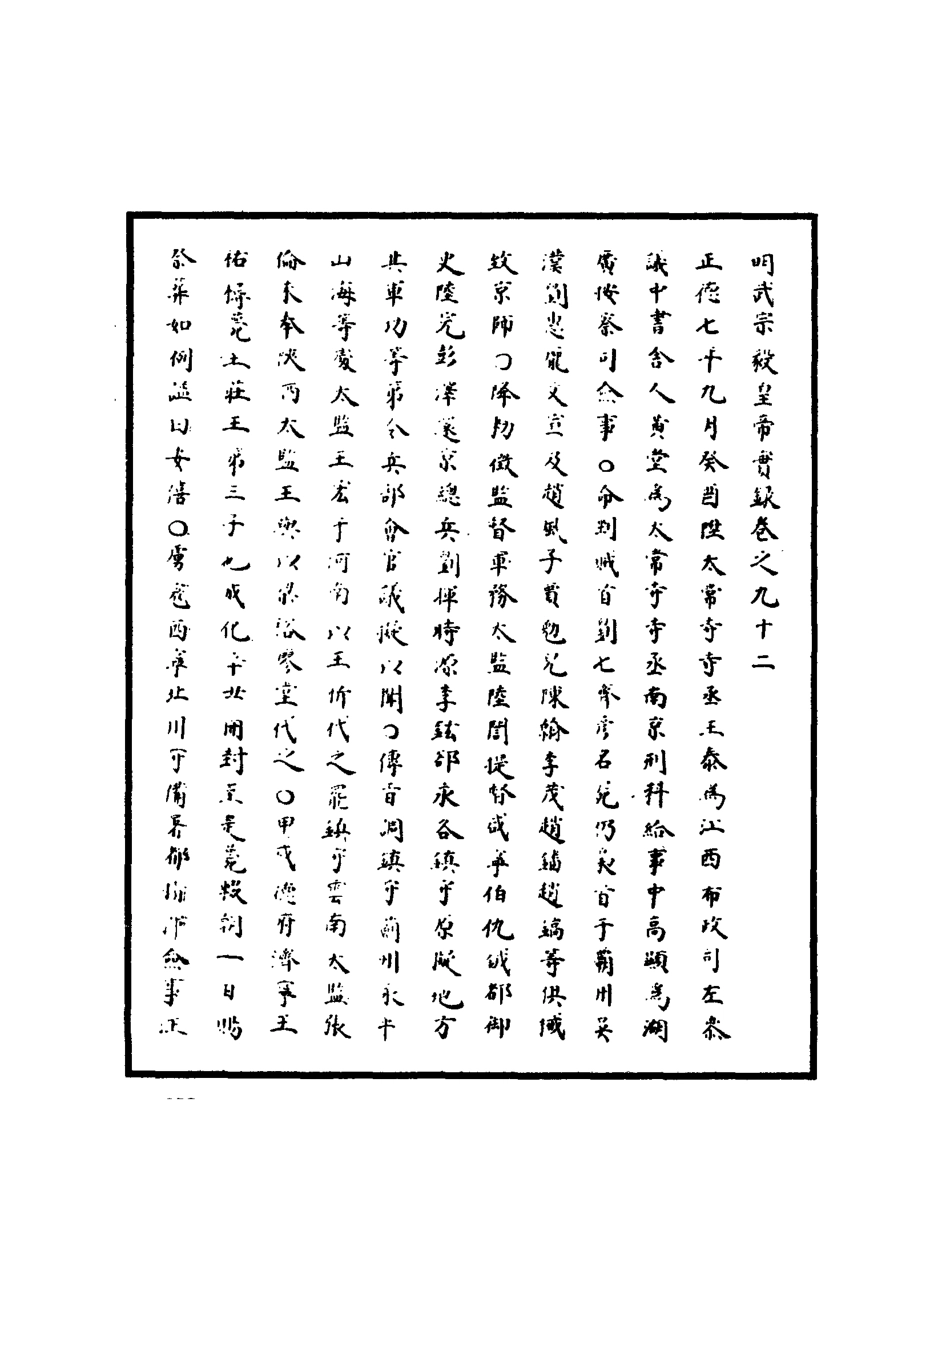 明武宗毅皇帝實錄卷之九十二
正德七年九月癸酉陞太常寺寺丞王泰為江西布政司左參
議中書舍人黃堂為太常寺寺丞南京刑科給事中高顯為湖
廣按察司僉事○命剉賊首劉七齊彥名屍仍梟首于霸州吳
漢劉惠龐文宣及趙風子賈勉兒陳翰李茂趙鐇趙鎬等俱械
致京師○降勑徵監督軍務太監陸誾提督咸寧伯仇鉞都御
史陸完彭澤還京總兵劉暉時源李鋐郤永各鎮守原擬地方
其軍功等第令兵部會官議擬以聞○傳旨調鎮守薊州永平
山海等處太監王宏于河南以王忻代之罷鎮守雲南太監張
倫未奉陝西太監王興以 裕 堂代之○甲戌德府濟寧王
祐樗薨土莊王第三子也成化 年 開封至是薨輟朝一日賜
祭葬如例諡曰安僖○虜寇西寧北川守備署都指揮僉事汪